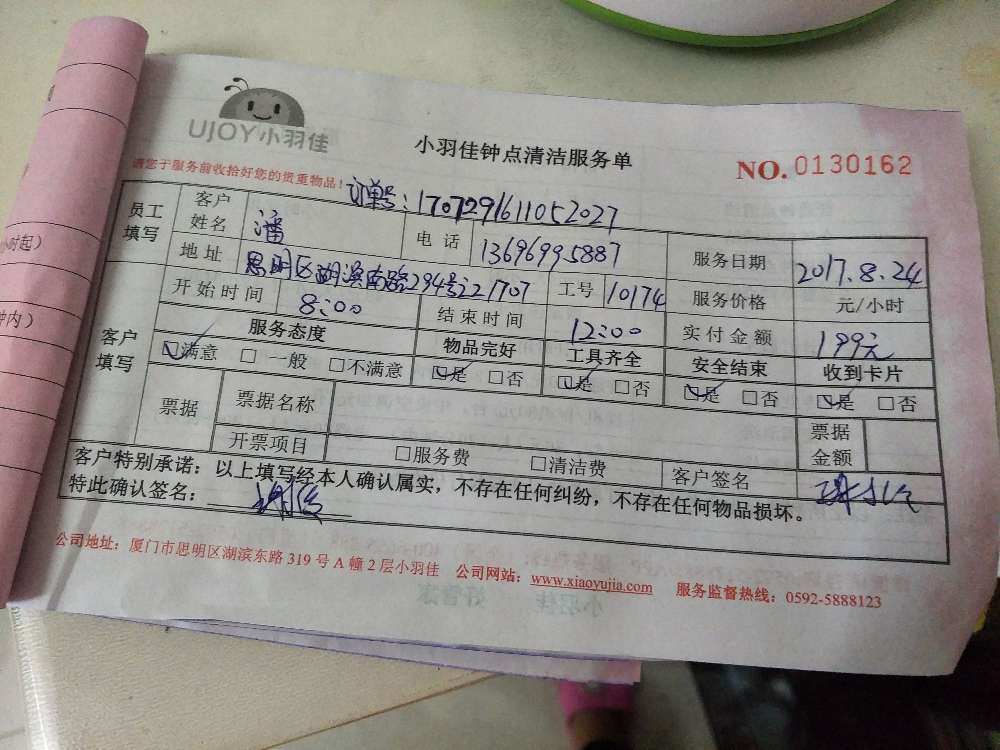 UJOY小羽佳
小羽佳钟点清洁服务单
NO. 0130162
请您于服务前收拾好您的贵重物品！
订单号：1707291611052027
员工填写 客户姓名 潘 电话 13696995887 服务日期 2017.8.24
地址 思明区湖滨南路294号之2 1707 工号 10174 服务价格 元/小时
开始时间 8:00 结束时间 12:00 实付金额 199元
客户填写 服务态度 物品完好 工具齐全 安全结束 收到卡片
☑满意 □一般 □不满意 ☑是 □否 ☑是 □否 ☑是 □否 ☑是 □否
票据 票据名称 票据金额
开票项目 □服务费 □清洁费 客户签名
客户特别承诺：以上填写经本人确认属实，不存在任何纠纷，不存在任何物品损坏。
特此确认签名：
公司地址：厦门市思明区湖滨东路 319 号 A 幢 2 层小羽佳 公司网站：www.xiaoyujia.com 服务监督热线：0592-5888123
小时起）
钟内）